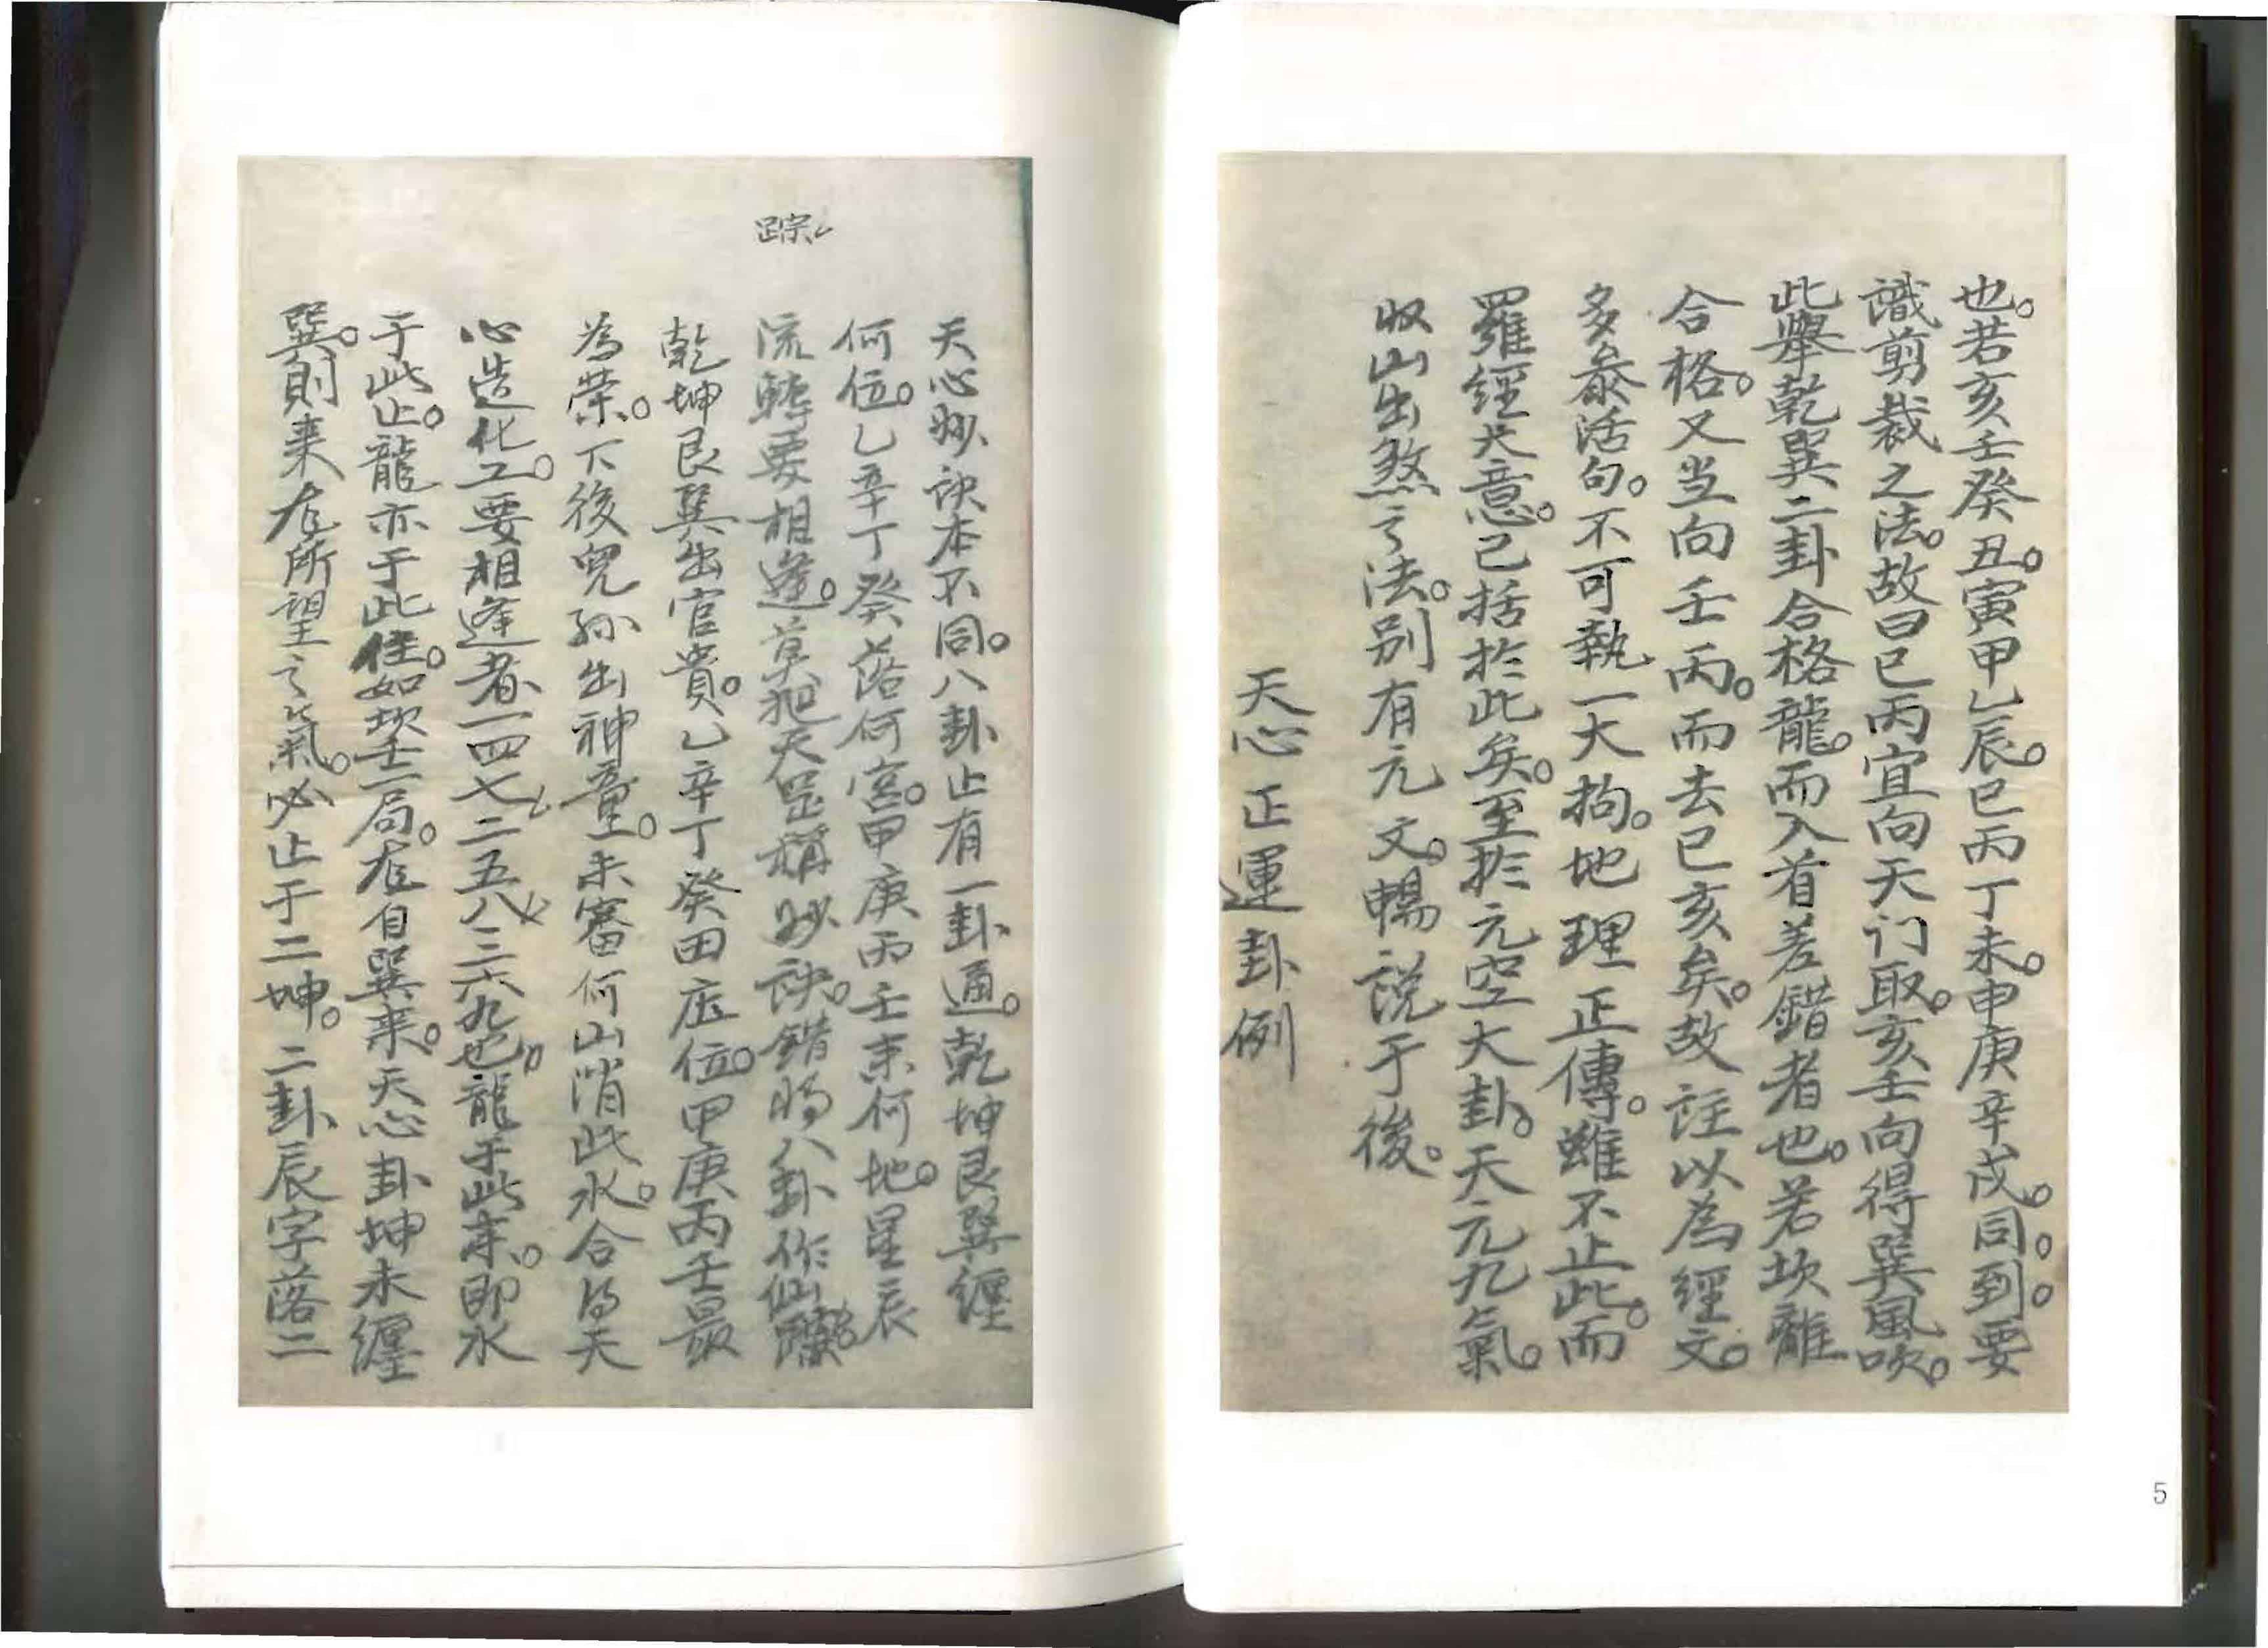 也。若亥壬癸丑。寅甲乙辰。巳丙丁未。申庚辛戌。同。到。要
識剪裁之法。故曰巳丙宜向天门取。亥壬向得巽風吹。
此舉乾巽二卦合格龍。而入首差錯者也。若坎離
合格。又当向壬丙。而去巳亥矣。故註以為經文。
多叅活句。不可執一大拘。地理正傳。雖不止此。而
羅經大意。已括於此矣。至於元空大卦。天元九氣。
収山出煞之法。別有元文。暢説于後。
天心正運卦例
5
天心妙訣本不同。八卦止有一卦通。乾坤艮巽纏
何位。乙辛丁癸落何宮。甲庚丙壬来何地。星辰
流轉要相逢。莫把天罡稱妙訣。錯將八卦作仙
踪
乾坤艮巽出官貴。乙辛丁癸田庄位。甲庚丙壬最
為荣。下後兒孫出神童。未審何山消此水。合得天
心造化工。要相逢者一四七二五八三六九也。龍于此来。即水
于此止。龍亦于此住。如坎壬一局。龙自巽来。天心卦坤未纏
巽。則来龙所望之氣。必止于二坤。二卦辰字落二